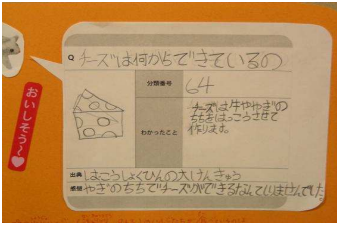 Q チーズは何からできているの
分類番号
64
おいしそう〜♥
わかったこと
チーズは牛ややぎの
ちちをはっこうさせて
作ります。
出典 はっこうしょくひんの大けんきゅう
感想 やぎのちちでチーズができるなんてしりませんでした。